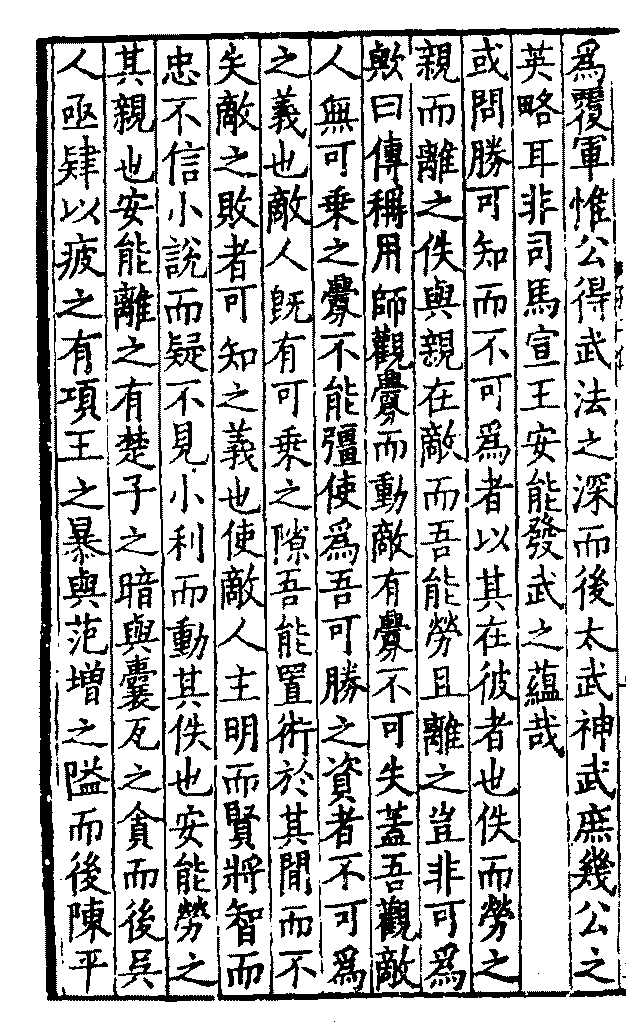 為覆軍惟公得武法之深而後太武神武庶幾公之
英略耳非司馬宣王安能發武之蘊哉
或問勝可知而不可為者以其在彼者也佚而勞之
親而離之佚與親在敵而吾能勞且離之豈非可為
歟曰傳稱用師觀釁而動敵有釁不可失蓋吾觀敵
人無可乗之釁不能彊使為吾可勝之資者不可為
之義也敵人旣有可乗之隙吾能置術於其間而不
失敵之敗者可知之義也使敵人主明而賢將智而
忠不信小說而疑不見小利而動其佚也安能勞之
其親也安能離之有楚子之暗與囊瓦之貪而後吳
人亟肄以疲之有項王之暴與范增之隘而後陳平